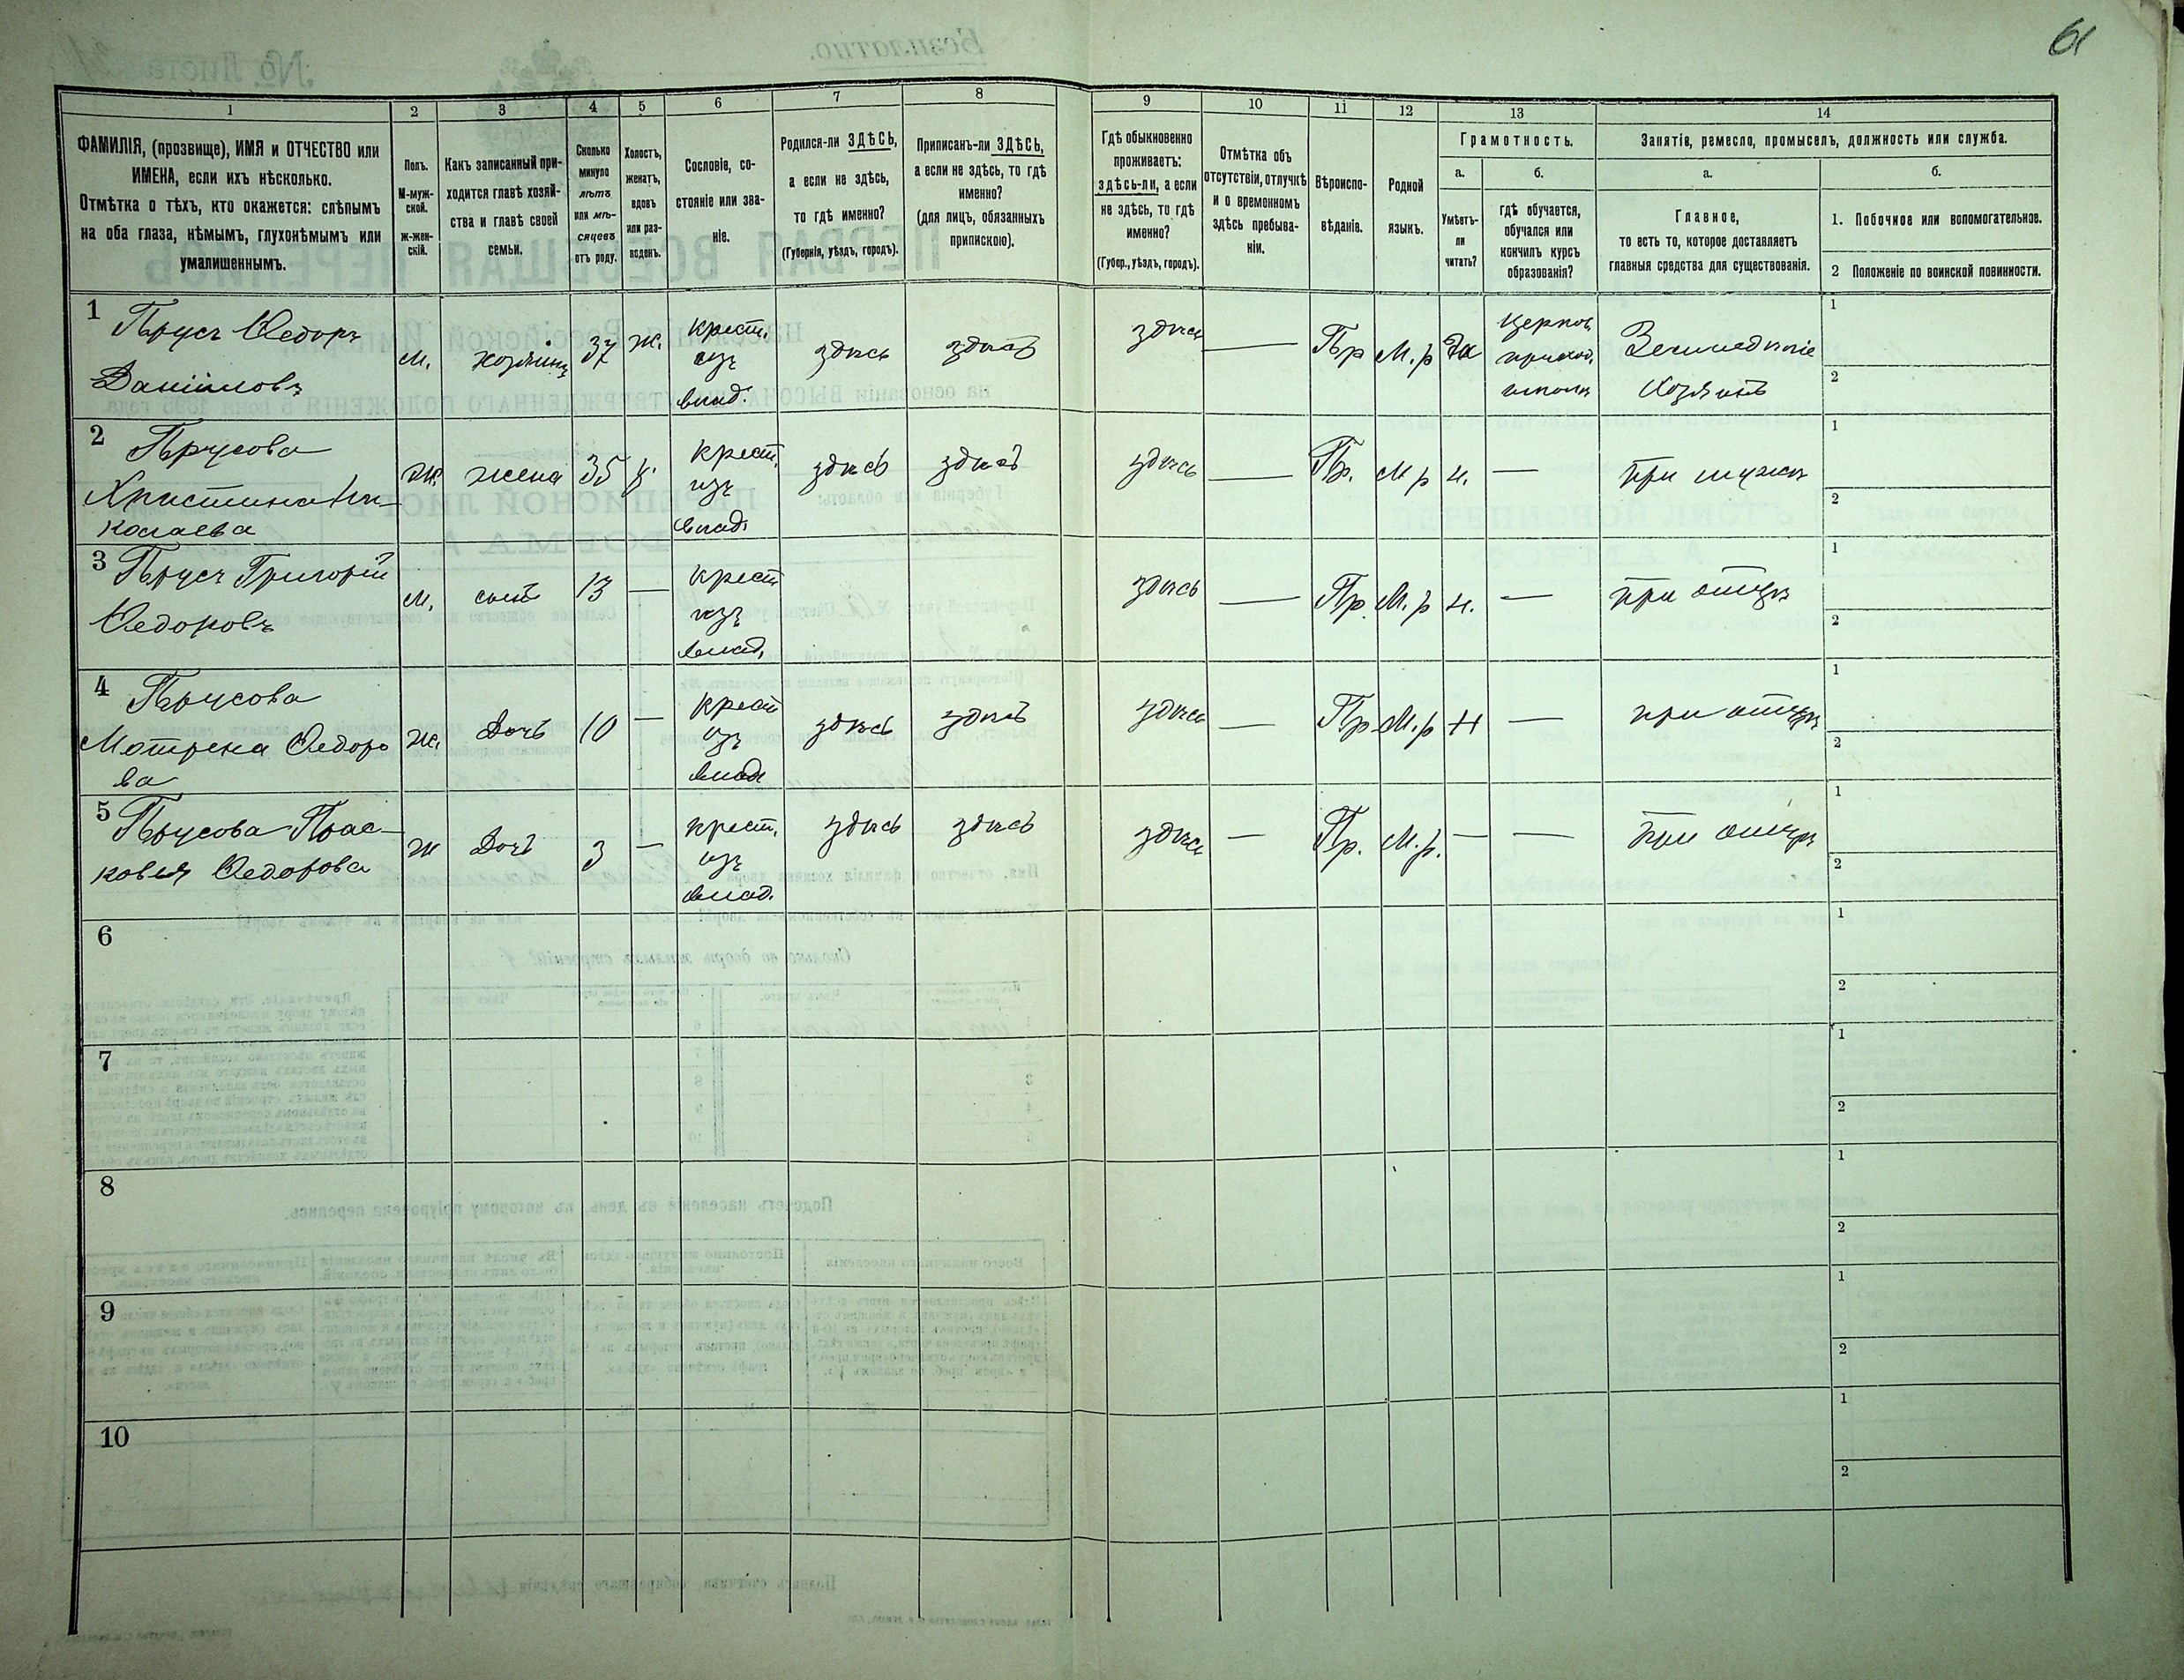 61
1 2 3 4 5 6 7 8 9 10 11 12 13 14
ФАМИЛІЯ, (прозвище), ИМЯ и ОТЧЕСТВО или
ИМЕНА, если ихъ нѣсколько.
Отмѣтка о тѣхъ, кто окажется: слѣпымъ
на оба глаза, нѣмымъ, глухонѣмымъ или
умалишеннымъ.
Полъ.
М-муж-
ской.
ж-жен-
скій.
Какъ записанный при-
ходится главѣ хозяй-
ства и главѣ своей
семьи.
Сколько
минуло
лѣтъ
или мѣ-
сяцевъ
отъ роду.
Холостъ,
женатъ,
вдовъ
или раз-
веденъ.
Сословіе, со-
стояніе или зва-
ніе.
Родился-ли ЗДѢСЬ,
а если не здѣсь,
то гдѣ именно?
(Губернія, уѣздъ, городъ).
Приписанъ-ли ЗДѢСЬ,
а если не здѣсь, то гдѣ
именно?
(для лицъ, обязанныхъ
припискою).
Гдѣ обыкновенно
проживаетъ:
здѣсь-ли, а если
не здѣсь, то гдѣ
именно?
(Губер., уѣздъ, городъ).
Отмѣтка объ
отсутствіи, отлучкѣ
и о временномъ
здѣсь пребыва-
ніи.
Вѣроиспо-
вѣданіе.
Родной
языкъ.
Грамотность.
а.
Умѣетъ-
ли
читать?
б.
гдѣ обучается,
обучался или
кончилъ курсъ
образованія?
Занятіе, ремесло, промыселъ, должность или служба.
а.
Главное,
то есть то, которое доставляетъ
главныя средства для существованія.
б.
1. Побочное или вспомогательное.
2 Положеніе по воинской повинности.
1 Прусъ Ѳедоръ
Даниіловъ
м. хозяинъ 37 ж.
крест.
изъ
влад.
здѣсь здѣсь здѣсь — Пр М.р да
церков.
приход.
школѣ
Земледѣліе
Хозяинъ
1
2
2 Прусова
Христина Ни-
колаева
ж. жена 35 з.
крест.
изъ
влад.
здѣсь здѣсь здѣсь — Пр. М р н. — при мужѣ
1
2
3 Прусъ Григорій
Ѳедоровъ
м. сынъ 13 —
крест
изъ
влад.
здѣсь — Пр. М.р н. — при отцѣ
1
2
4 Прусова
Мотрена Ѳедоро
ва
ж. Дочь 10 —
крест
изъ
влад
здѣсь здѣсь здѣсь — Пр М.р н — при отцѣ
1
2
5 Прусова Прас-
ковья Ѳедорова
ж Дочь 3 —
крест.
изъ
влад.
здѣсь здѣсь здѣсь — Пр. М.р. — — при отцѣ
1
2
6
1
2
7
1
2
8
1
2
9
1
2
10
1
2